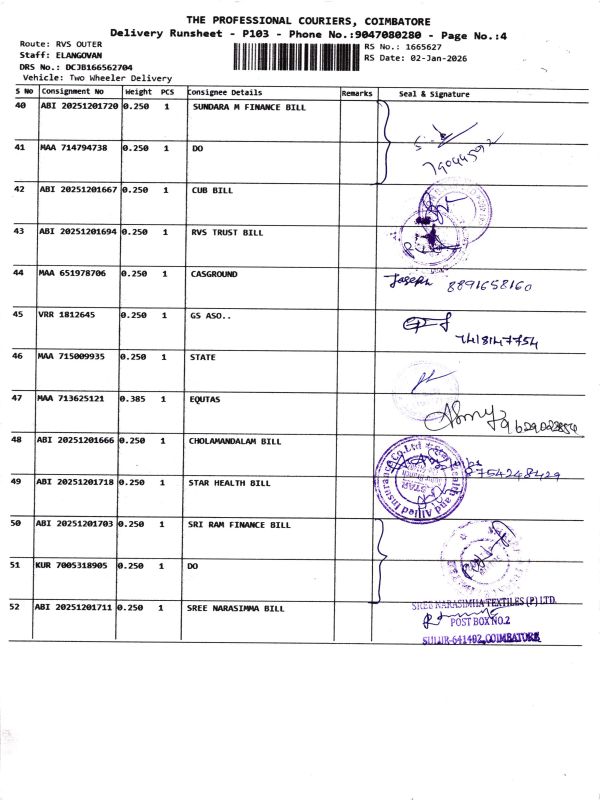 THE PROFESSIONAL COURIERS, COIMBATORE
Delivery Runsheet - P103 - Phone No.:9047080280 - Page No.:4
Route: RVS OUTER
RS No.: 1665627
Staff: ELANGOVAN
RS Date: 02-Jan-2026
DRS No.: DCJB166562704
Vehicle: Two Wheeler Delivery
S No Consignment No Weight PCS Consignee Details Remarks Seal & Signature
40 ABI 20251201720 0.250 1 SUNDARA M FINANCE BILL
41 MAA 714794738 0.250 1 DO
42 ABI 20251201667 0.250 1 CUB BILL
43 ABI 20251201694 0.250 1 RVS TRUST BILL
44 MAA 651978706 0.250 1 CASGROUND Joseph 8891658160
45 VRR 1812645 0.250 1 GS ASO.. 7418147754
46 MAA 715009935 0.250 1 STATE
47 MAA 713625121 0.385 1 EQUTAS
48 ABI 20251201666 0.250 1 CHOLAMANDALAM BILL
49 ABI 20251201718 0.250 1 STAR HEALTH BILL 8754248429
Star Health and Allied Insurance Co. Ltd
50 ABI 20251201703 0.250 1 SRI RAM FINANCE BILL
51 KUR 7005318905 0.250 1 DO
52 ABI 20251201711 0.250 1 SREE NARASIMMA BILL
SREE NARASIMHA TEXTILES (P) LTD.
POST BOX NO.2
SULUR-641402, COIMBATORE